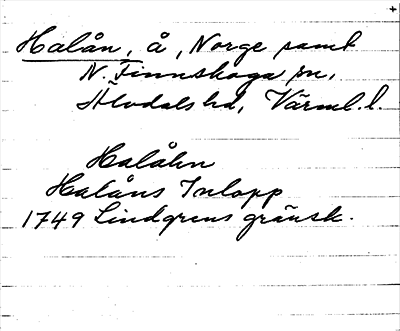 Halån, å, Norge samt
N. Finnskoga sn,
Älvdals hd, Värml. l.
Halåhn
Halåns Inlopp
1749 Lindgrens gränsk.